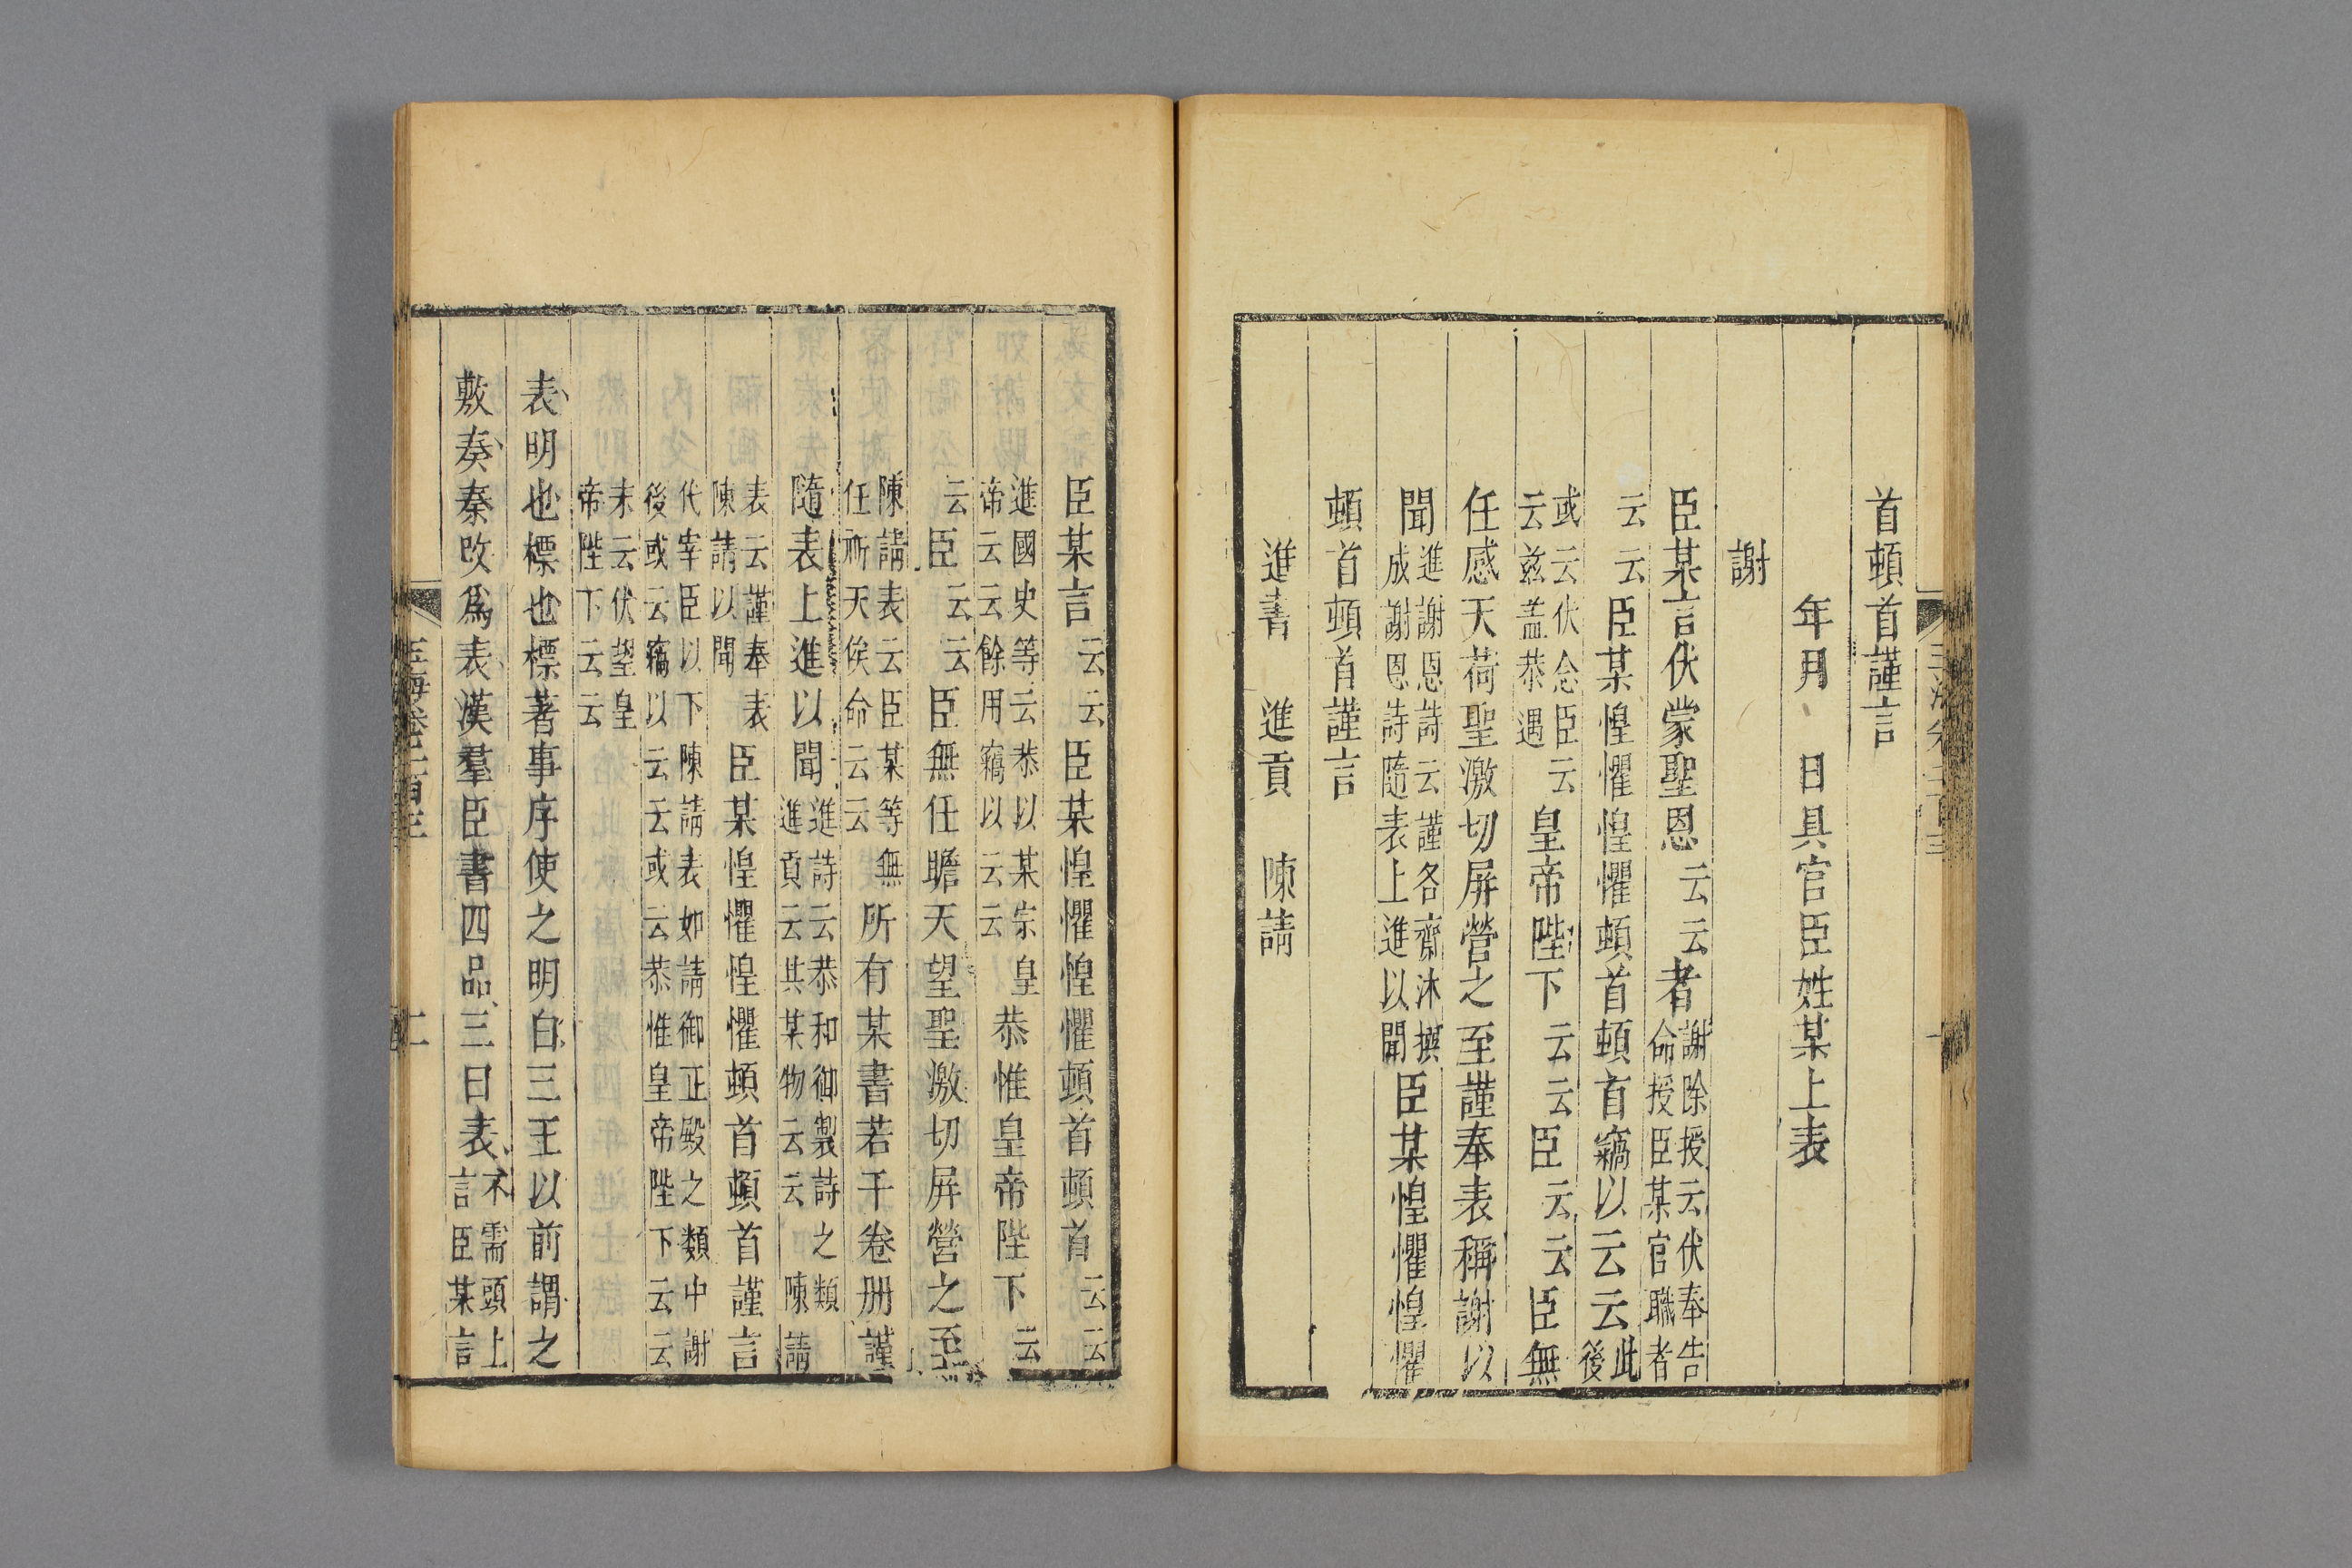 首頓首謹言
年月日具官臣姓某上表
謝
臣某言伏蒙聖恩云云者謝除授云伏奉告命授臣某官職者
云云臣某惶懼惶懼頓首頓首竊以云云此後
或云伏念臣云云茲蓋恭遇皇帝陛下云云臣云云臣無
任感天荷聖激切屏營之至謹奉表稱謝以
聞進謝恩詩云謹各齋沐撰成謝恩詩隨表上進以聞臣某惶懼惶懼
頓首頓首謹言
進書 進貢 陳請
臣某言云云臣某惶懼惶懼頓首頓首云云
進國史等云恭以某宗皇帝云云餘用竊以云云恭惟皇帝陛下云
云臣云云臣無任瞻天望聖激切屏營之至
陳請表云臣某等無任祈天俟命云云所有某書若干卷册謹
隨表上進以聞進詩云恭和御製詩之類進貢云其某物云云陳請
表云謹奉表陳請以聞臣某惶懼惶懼頓首頓首謹言
代宰臣以下陳請表如請御正殿之類中謝後或云竊以云云或云恭惟皇帝陛下云云
末云伏望皇帝陛下云云
表明也標也標著事序使之明白三王以前謂之
敷奏秦改爲表漢羣臣書四品三曰表不需頭上言臣某言
玉海卷二百三
二